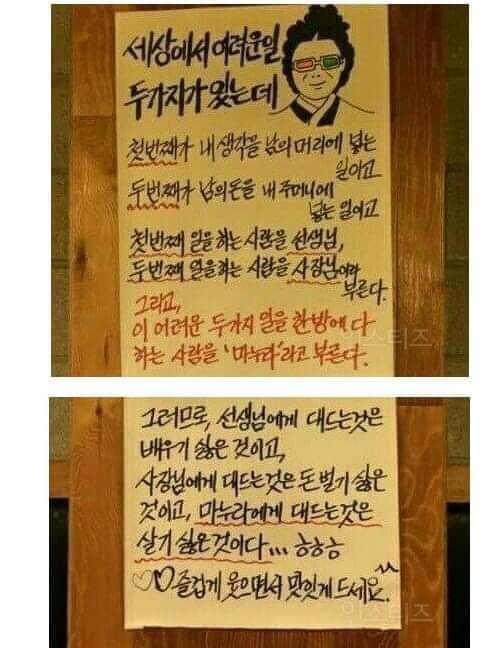 세상에서 어려운일
두가지가 있는데
첫번째가 내 생각을 남의 머리에 넣는
일이고
두번째가 남의돈을 내 주머니에
넣는 일이고
첫번째 일을 하는 사람을 선생님,
두번째 일을하는 사람을 사장님이라
부른다.
그리고,
이 어려운 두가지 일을 한방에 다
하는 사람을 '마누라'라고 부른다.
이스티즈
그러므로, 선생님에게 대드는것은
배우기 싫은 것이고,
사장님에게 대드는것은 돈 벌기 싫은
것이고, 마누라에게 대드는것은
살기 싫은것이다... ㅎㅎㅎ
♡♥ 즐겁게 웃으면서 맛있게 드세요.^^
이스티즈